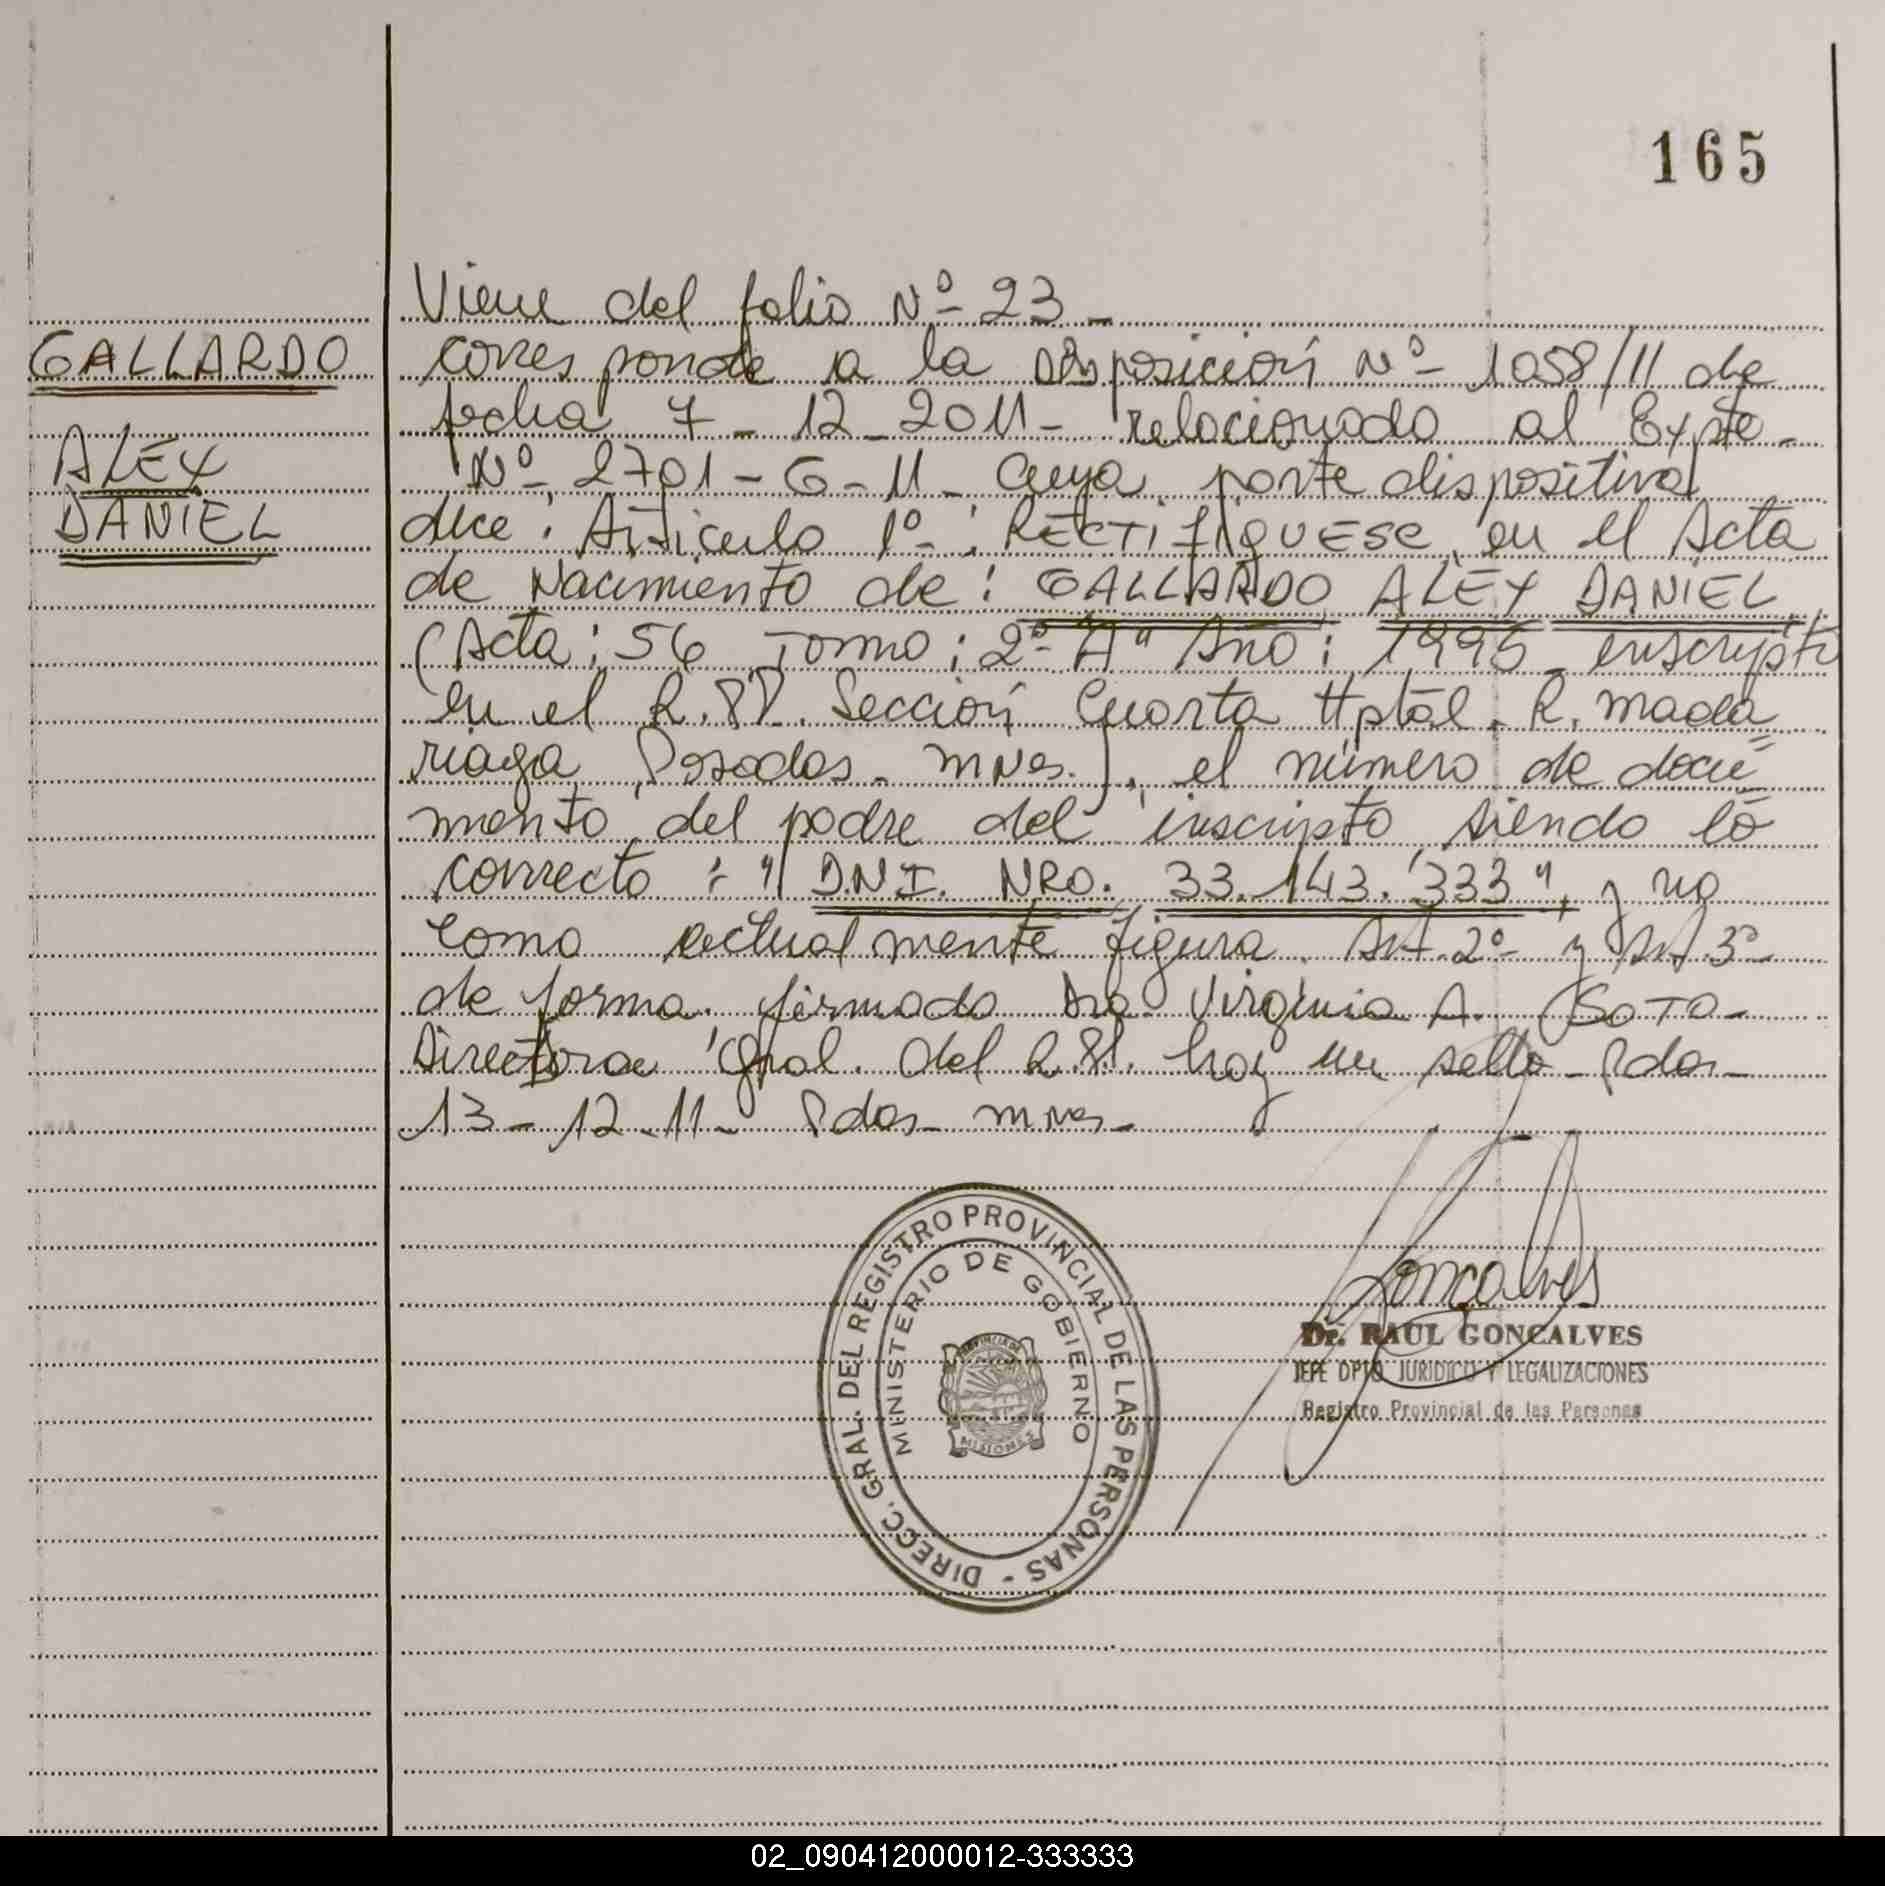 165
Viene del folio Nº 23 -
GALLARDO
corresponde a la Disposición Nº 1058/11 de
fecha 7-12-2011- relacionado al Expte-
ALEX
Nº 2701-G-11- Cuya parte dispositiva
DANIEL
dice: Articulo 1º: RECTIFIQUESE en el Acta
de Nacimiento de: GALLARDO ALEX DANIEL
(Acta: 56 Tomo: 2º "A" Año: 1995 inscripto
en el R.PP. Sección Cuarta Hptal. R. Mada
riaga Posadas - Mnes.), el número de docu
mento del padre del inscripto siendo lo
correcto: "D.N.I. NRO. 33.143.333", y no
como actualmente figura. Art. 2º y Art. 3º
de forma. firmado Dra. Virginia A. SOTO-
Directora Gral. del R.PP. hay un sello - Pdas-
13-12-11- Pdas- Mnes-
DIRECC. GRAL. DEL REGISTRO PROVINCIAL DE LAS PERSONAS -
MINISTERIO DE GOBIERNO
PROVINCIA DE
MISIONES
Goncalves
Dr. RAUL GONCALVES
JEFE DPTO. JURIDICO Y LEGALIZACIONES
Registro Provincial de las Personas
02_090412000012-333333